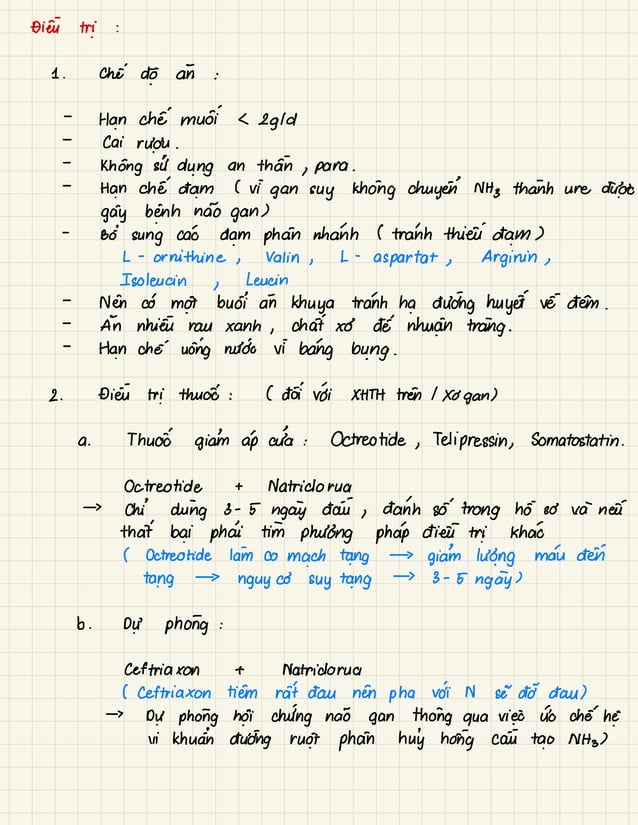 Điều trị :
1. Chế độ ăn :
- Hạn chế muối < 2g/d
- Cai rượu.
- Không sử dụng an thần, para.
- Hạn chế đạm ( vì gan suy không chuyển NH3 thành ure được
gây bệnh não gan)
- Bổ sung các đạm phân nhánh ( tránh thiếu đạm)
L - ornithine , Valin , L - aspartat , Arginin ,
Isoleucin , Leucin
- Nên có một buổi ăn khuya tránh hạ đường huyết về đêm.
- Ăn nhiều rau xanh, chất xơ để nhuận tràng.
- Hạn chế uống nước vì báng bụng.
2. Điều trị thuốc : ( đối với XHTH trên / Xơ gan)
a. Thuốc giảm áp cửa : Octreotide, Telipressin, Somatostatin.
Octreotide + Natriclorua
→ Chỉ dùng 3-5 ngày đầu, đánh số trong hồ sơ và nếu
thất bại phải tìm phương pháp điều trị khác
( Octreotide làm co mạch tạng → giảm lượng máu đến
tạng → nguy cơ suy tạng → 3-5 ngày)
b. Dự phòng :
Ceftriaxon + Natriclorua
( Ceftriaxon tiêm rất đau nên pha với N sẽ đỡ đau)
→ Dự phòng hội chứng não gan thông qua việc ức chế hệ
vi khuẩn đường ruột phân huỷ hồng cầu tạo NH3)